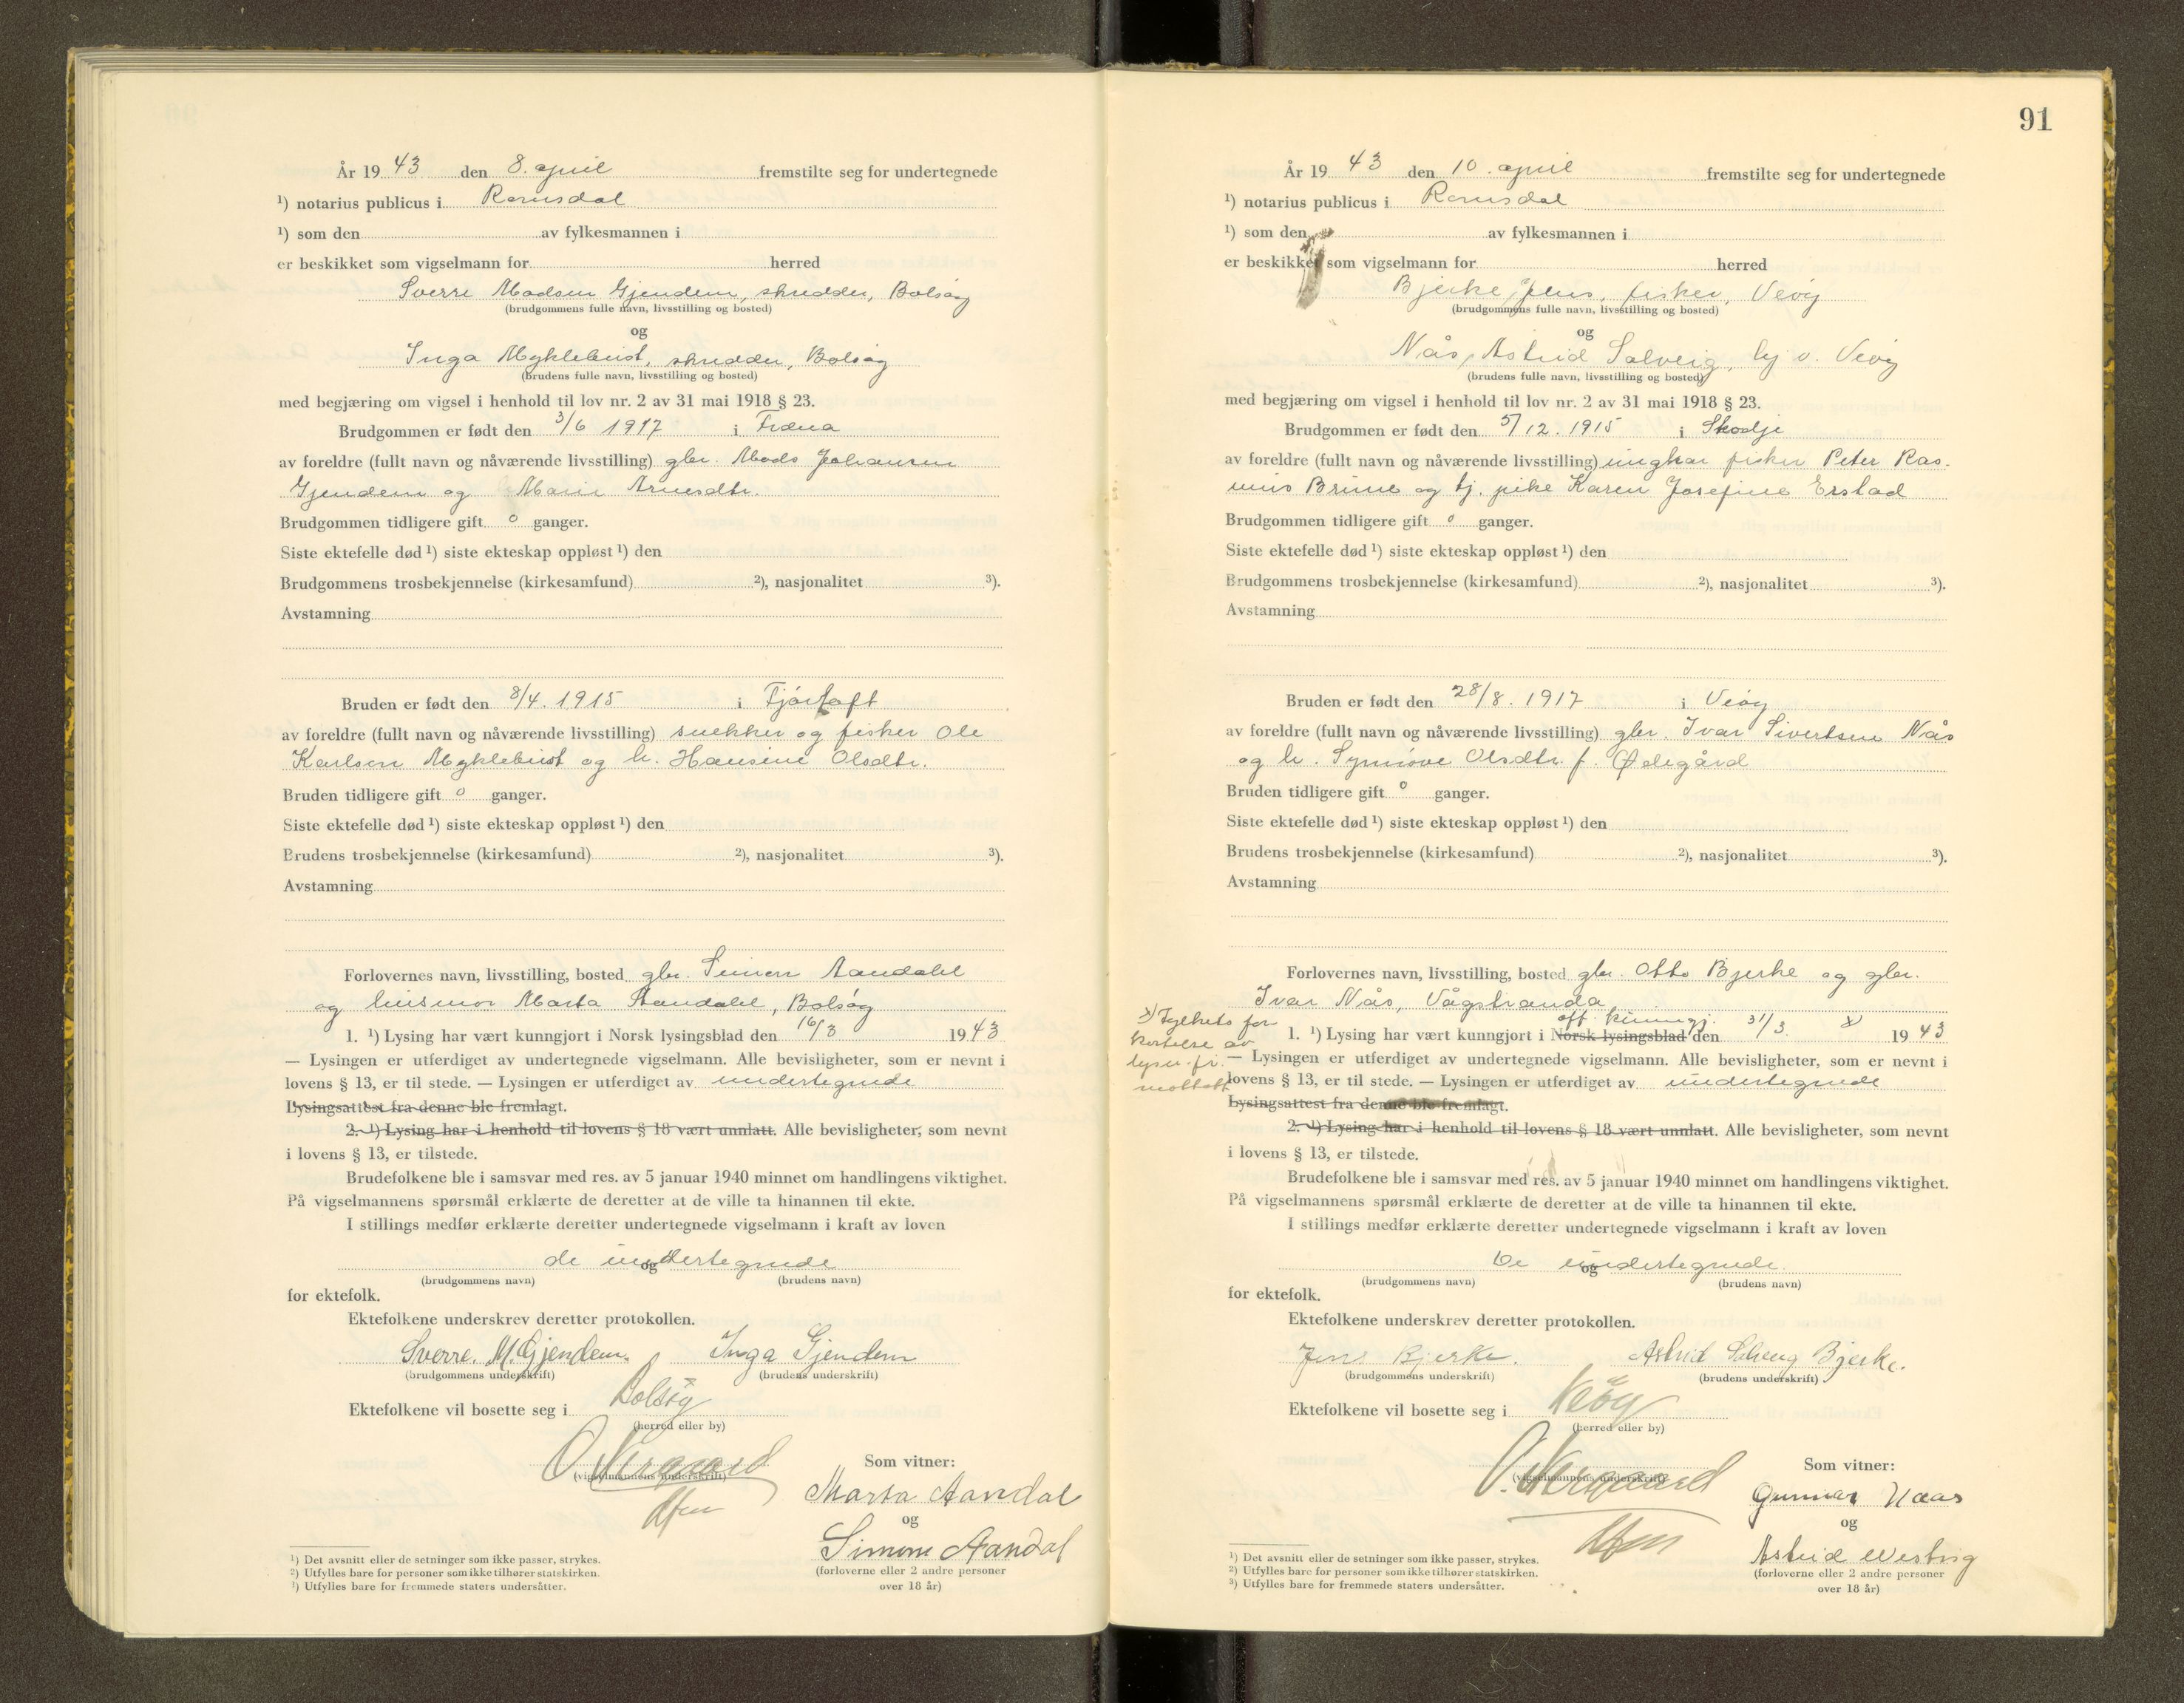 År 19 43 den 8. april fremstilte seg for undertegnede
¹) notarius publicus i Romsdal
¹) som den av fylkesmannen i
er beskikket som vigselmann for herred
Sverre Madsen Gjendem, skredder, Bolsøy
(brudgommens fulle navn, livsstilling og bosted)
og
Inga Myklebust, skredder, Bolsøy
(brudens fulle navn, livsstilling og bosted)
med begjæring om vigsel i henhold til lov nr. 2 av 31 mai 1918 § 23.
Brudgommen er født den 3/6 1917 i Fræna
av foreldre (fullt navn og nåværende livsstilling) gbr. Mads Johansen
Gjendem og Marie Arnesdtr.
Brudgommen tidligere gift 0 ganger.
Siste ektefelle død ¹) siste ekteskap oppløst ¹) den
Brudgommens trosbekjennelse (kirkesamfund) ²), nasjonalitet ³).
Avstamning
Bruden er født den 8/4. 1915 i Fjørtoft
av foreldre (fullt navn og nåværende livsstilling) snekker og fisker Ole
Karlsen Myklebust og h. Hansine Olsdtr.
Bruden tidligere gift 0 ganger.
Siste ektefelle død ¹) siste ekteskap oppløst ¹) den
Brudens trosbekjennelse (kirkesamfund) ²), nasjonalitet ³).
Avstamning
Forlovernes navn, livsstilling, bosted gbr. Simon Aandahl
og husmor Marta Aandahl, Bolsøy
1. ¹) Lysing har vært kunngjort i Norsk lysingsblad den 16/3 19 43
— Lysingen er utferdiget av undertegnede vigselmann. Alle bevisligheter, som er nevnt i
lovens § 13, er til stede. — Lysingen er utferdiget av undertegnede
Lysingsattest fra denne ble fremlagt.
2. ¹) Lysing har i henhold til lovens § 18 vært unnlatt. Alle bevisligheter, som nevnt
i lovens § 13, er tilstede.
Brudefolkene ble i samsvar med res. av 5 januar 1940 minnet om handlingens viktighet.
På vigselmannens spørsmål erklærte de deretter at de ville ta hinannen til ekte.
I stillings medfør erklærte deretter undertegnede vigselmann i kraft av loven
de undertegnede
og
(brudgommens navn) (brudens navn)
for ektefolk.
Ektefolkene underskrev deretter protokollen.
Sverre. M. Gjendem. Inga Gjendem
(brudgommens underskrift) (brudens underskrift)
Ektefolkene vil bosette seg i Bolsøy
(herred eller by)
(vigselmannens underskrift)
Som vitner:
Marta Aandal
og
Simon Aandal
(forloverne eller 2 andre personer
over 18 år)
¹) Det avsnitt eller de setninger som ikke passer, strykes.
²) Utfylles bare for personer som ikke tilhører statskirken.
³) Utfylles bare for fremmede staters undersåtter.
91
År 19 43 den 10. april fremstilte seg for undertegnede
¹) notarius publicus i Romsdal
¹) som den av fylkesmannen i
er beskikket som vigselmann for herred
Bjerke, Jens, fisker, Veøy
(brudgommens fulle navn, livsstilling og bosted)
og
Nås, Astrid Solveig, hj. v. Veøy
(brudens fulle navn, livsstilling og bosted)
med begjæring om vigsel i henhold til lov nr. 2 av 31 mai 1918 § 23.
Brudgommen er født den 5/12. 1915 i Skodje
av foreldre (fullt navn og nåværende livsstilling) ungkar fisker Peter Ras-
mus Brune og tj. pike Karen Josefine Erstad
Brudgommen tidligere gift 0 ganger.
Siste ektefelle død ¹) siste ekteskap oppløst ¹) den
Brudgommens trosbekjennelse (kirkesamfund) ²), nasjonalitet ³).
Avstamning
Bruden er født den 28/8. 1917 i Veøy
av foreldre (fullt navn og nåværende livsstilling) gbr. Ivar Sivertsen Nås
og h. Synnøve Olsdtr. f. Ødegård
Bruden tidligere gift 0 ganger.
Siste ektefelle død ¹) siste ekteskap oppløst ¹) den
Brudens trosbekjennelse (kirkesamfund) ²), nasjonalitet ³).
Avstamning
Forlovernes navn, livsstilling, bosted gbr. Otto Bjerke og gbr.
Ivar Nås, Vågstranda
off. kunngj.
1. ¹) Lysing har vært kunngjort i Norsk lysingsblad den 31/3. x) 19 43
x) Fylkets for
kortelse av
lysn. fr.
mottatt
— Lysingen er utferdiget av undertegnede vigselmann. Alle bevisligheter, som er nevnt i
lovens § 13, er til stede. — Lysingen er utferdiget av undertegnede
Lysingsattest fra denne ble fremlagt.
2. ¹) Lysing har i henhold til lovens § 18 vært unnlatt. Alle bevisligheter, som nevnt
i lovens § 13, er tilstede.
Brudefolkene ble i samsvar med res. av 5 januar 1940 minnet om handlingens viktighet.
På vigselmannens spørsmål erklærte de deretter at de ville ta hinannen til ekte.
I stillings medfør erklærte deretter undertegnede vigselmann i kraft av loven
De undertegnede
og
(brudgommens navn) (brudens navn)
for ektefolk.
Ektefolkene underskrev deretter protokollen.
Jens Bjerke. Astrid Solveig Bjerke.
(brudgommens underskrift) (brudens underskrift)
Ektefolkene vil bosette seg i Veøy
(herred eller by)
(vigselmannens underskrift)
Som vitner:
Gunnar Naas
og
Astrid
(forloverne eller 2 andre personer
over 18 år)
¹) Det avsnitt eller de setninger som ikke passer, strykes.
²) Utfylles bare for personer som ikke tilhører statskirken.
³) Utfylles bare for fremmede staters undersåtter.